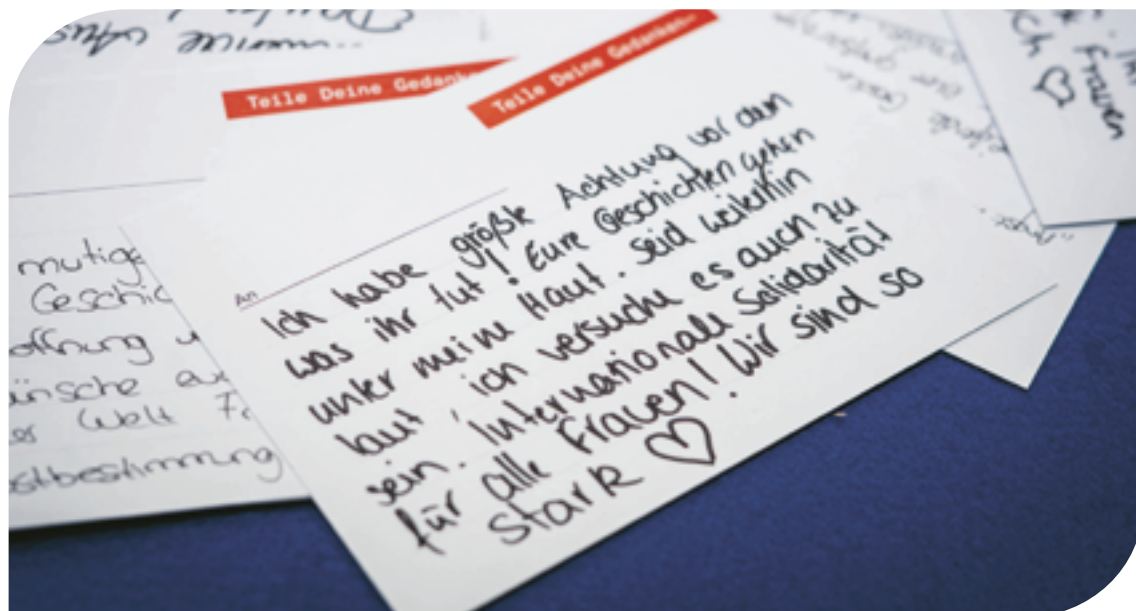 Teile Deine Gedank
Teile Deine Gedanken
An
Ich habe größte Achtung vor dem
was ihr tut! Eure Geschichten gehen
unter meine Haut. Seid weiterhin
laut, ich versuche es auch zu
sein. Internationale Solidarität
für alle Frauen! Wir sind so
stark ♡
mutige
Geschic
offnung
ünsche
Welt
stbestimmung
Frauen
ch ♡